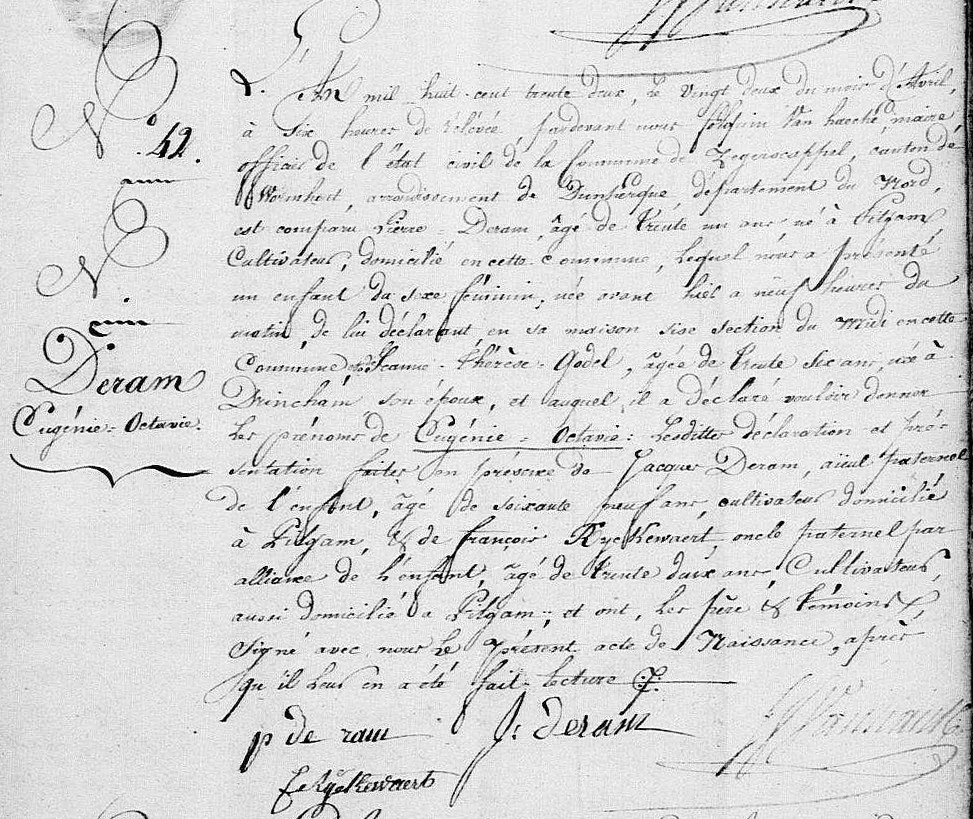 N° 42.
N
Deram
Eugénie = Octavie.
L'An mil huit cent trente deux, le vingt deux du mois d'Avril,
à six heures de rélévée, pardevant nous Joseph Van haecke, maire
officier de l'état civil de la Commune de Zegerscappel, canton de
Wormhout, arrondissement de Dunkerque, département du Nord,
est comparu Pierre Deram, âgé de trente un ans né à Pitgam
Cultivateur, domicilié en cette commune, lequel nous a présenté
un enfant du sexe féminin, née avant hier a neuf heures du
matin, de lui déclarant en sa maison sise section du Midi en cette
Commune et de Jeanne - thérèse - Godel, âgée de trente six ans, née à
Drincham son épouse, et auquel il a déclaré vouloir donner
les prénoms de Eugénie = Octavie: Lesdittes déclaration et pré-
sentation faites en présence de Jacques Deram, aiïeul paternel
de l'enfant, âgé de soixante neuf ans, cultivateur domicilié
à Pitgam, & de françois Ryckewaert, oncle paternel par
alliance de l'enfant, âgé de trente deux ans, Cultivateur,
aussi domicilié a Pitgam; et ont, les père & témoins,
signé avec nous le présent acte de Naissance, après
qu'il leur en a été fait lecture
p de ram J: deram
f Ryckewaert